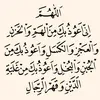 اللَّهُمَّ
إِنِّي أَعُوذُ بِكَ مِنَ الْهَمِّ وَالْحَزَنِ
وَالْعَجْزِ وَالْكَسَلِ وَأَعُوذُ بِكَ مِنَ
الْجُبْنِ وَالْبُخْلِ وَأَعُوذُ بِكَ مِنْ غَلَبَةِ
الدَّيْنِ وَقَهْرِ الرِّجَالِ